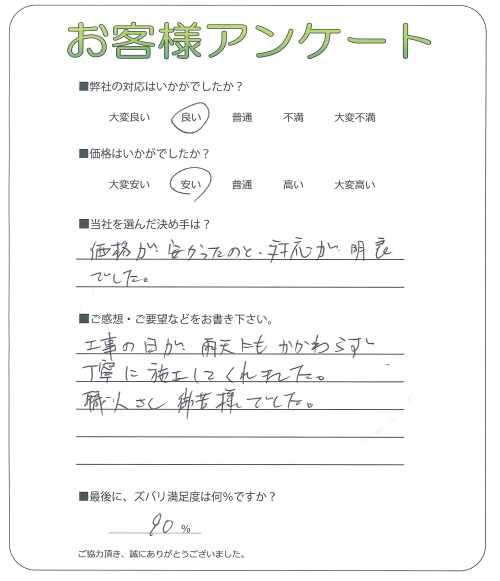 お客様アンケート
■弊社の対応はいかがでしたか？
大変良い 良い 普通 不満 大変不満
■価格はいかがでしたか？
大変安い 安い 普通 高い 大変高い
■当社を選んだ決め手は？
価格が安かったのと、対応が明良
でした。
■ご感想・ご要望などをお書き下さい。
工事の日が雨天にもかかわらず
丁寧に施工してくれました。
職人さん御苦様でした。
■最後に、ズバリ満足度は何％ですか？
90 %
ご協力頂き、誠にありがとうございました。